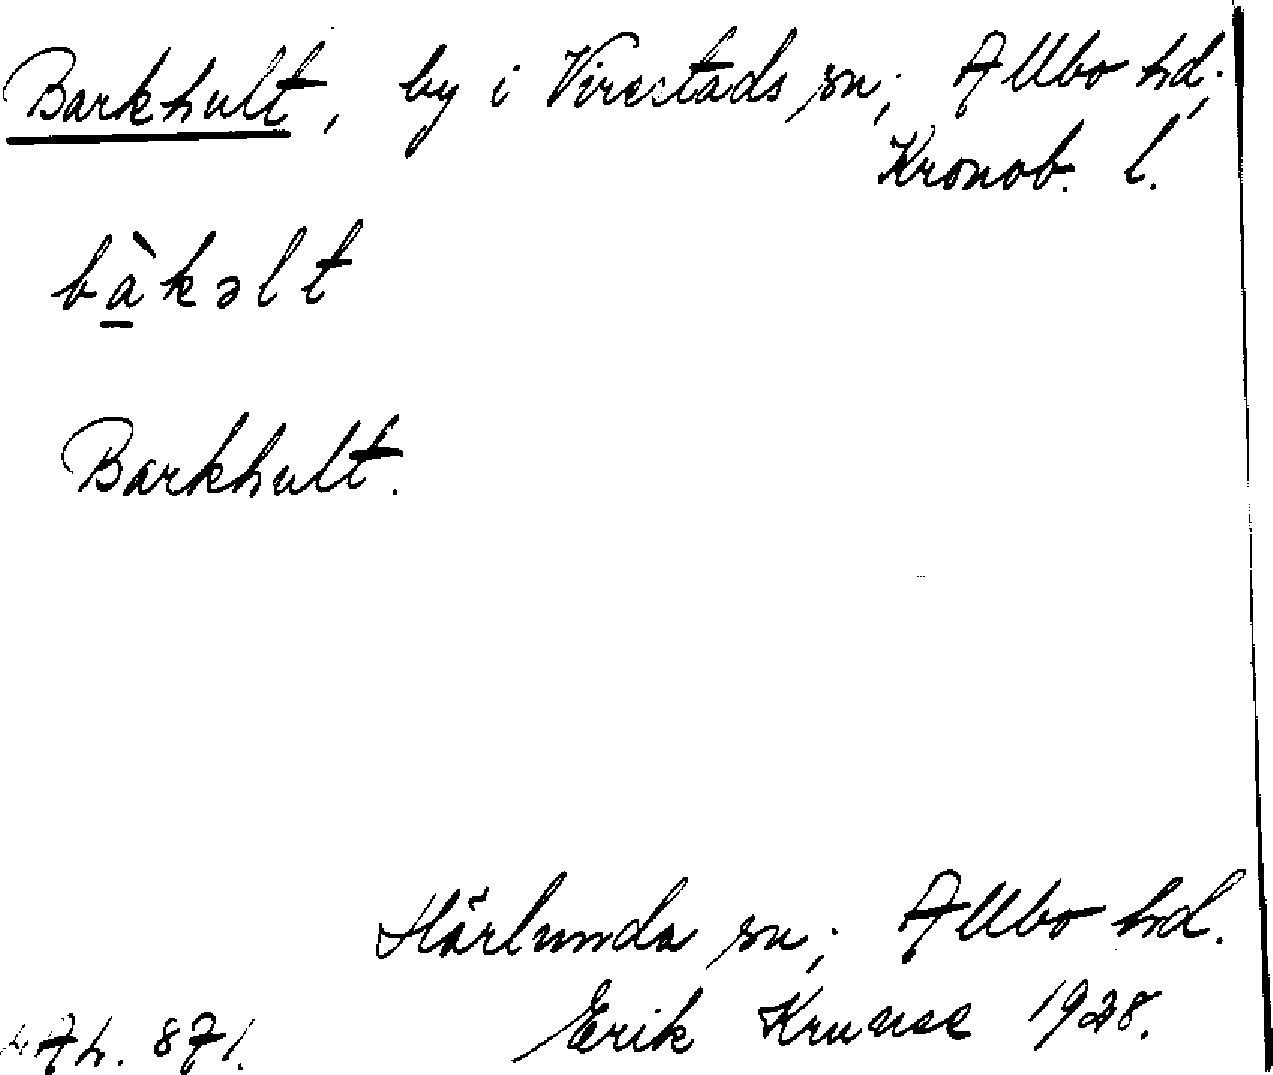 Barkhult, by i Virestads sn; Allbo hd;
Kronob. l.
bàkəlt
Barkhult.
Härlunda sn; Allbo hd.
Erik Kruuse 1928.
871.